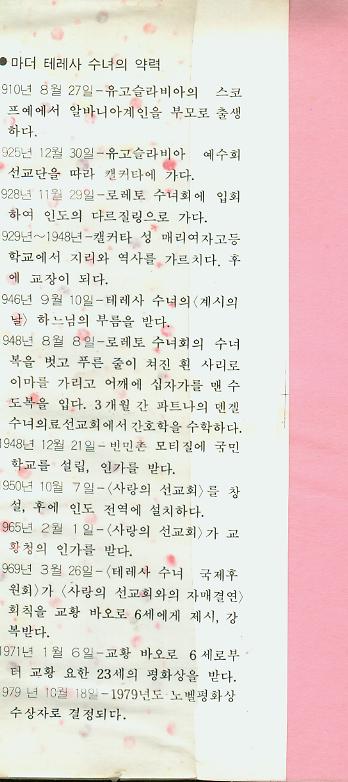 ●마더 테레사 수녀의 약력
910년 8월 27일-유고슬라비아의 스코
프예에서 알바니아계인을 부모로 출생
하다.
925년 12월 30일-유고슬라비아 예수회
선교단을 따라 캘커타에 가다.
928년 11월 29일-로레토 수녀회에 입회
하여 인도의 다르질링으로 가다.
929년~1948년-캘커타 성 매리여자고등
학교에서 지리와 역사를 가르치다. 후
에 교장이 되다.
946년 9월 10일-테레사 수녀의〈계시의
날〉하느님의 부름을 받다.
948년 8월 8일-로레토 수녀회의 수녀
복을 벗고 푸른 줄이 쳐진 흰 사리로
이마를 가리고 어깨에 십자가를 맨 수
도복을 입다. 3개월 간 파트나의 덴겔
수녀의료선교회에서 간호학을 수학하다.
1948년 12월 21일-빈민촌 모티질에 국민
학교를 설립, 인가를 받다.
1950년 10월 7일-〈사랑의 선교회〉를 창
설, 후에 인도 전역에 설치하다.
965년 2월 1일-〈사랑의 선교회〉가 교
황청의 인가를 받다.
969년 3월 26일-〈테레사 수녀 국제후
원회〉가 〈사랑의 선교회와의 자매결연〉
회칙을 교황 바오로 6세에게 제시, 강
복받다.
1971년 1월 6일-교황 바오로 6세로부
터 교황 요한 23세의 평화상을 받다.
979년 10월 18일-1979년도 노벨평화상
수상자로 결정되다.